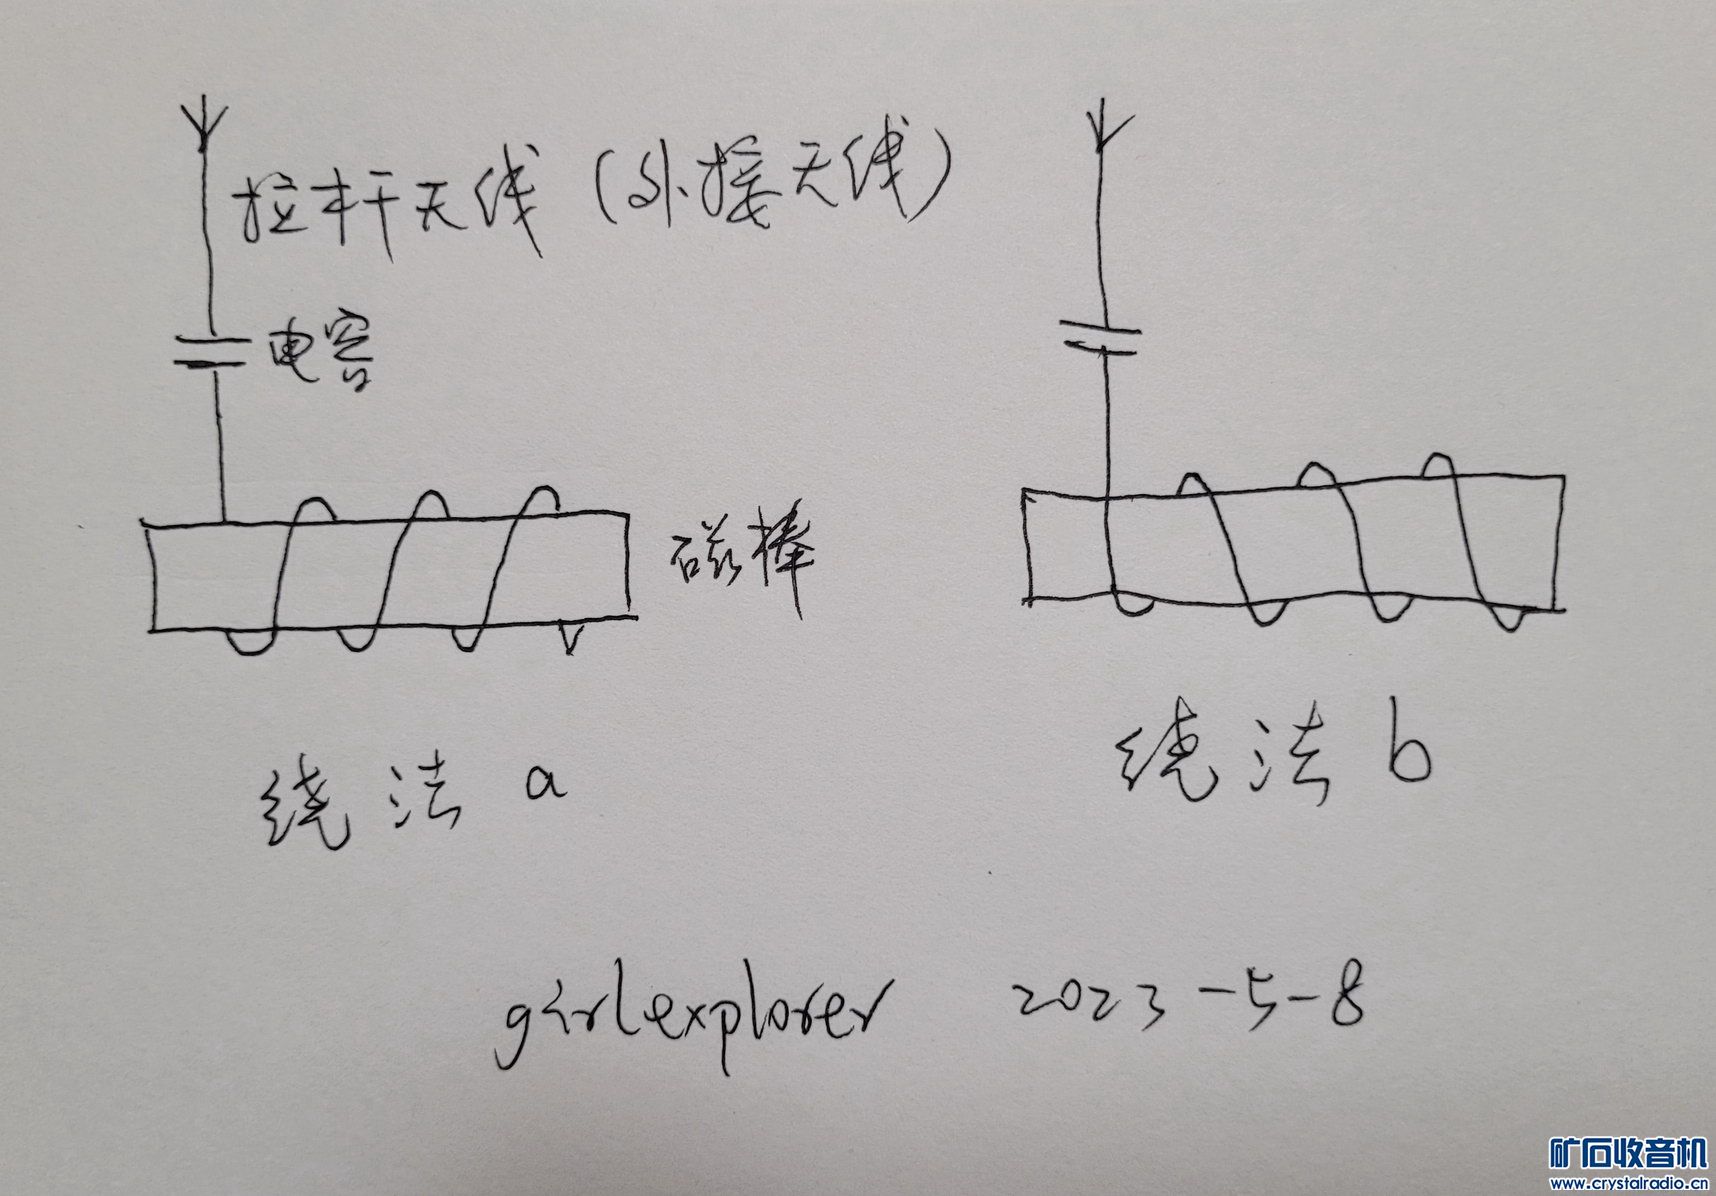 拉杆天线（外接天线）
电容
磁棒
绕法 a
绕法 b
girlexplorer 2023-5-8
矿石收音机
www.crystalradio.cn